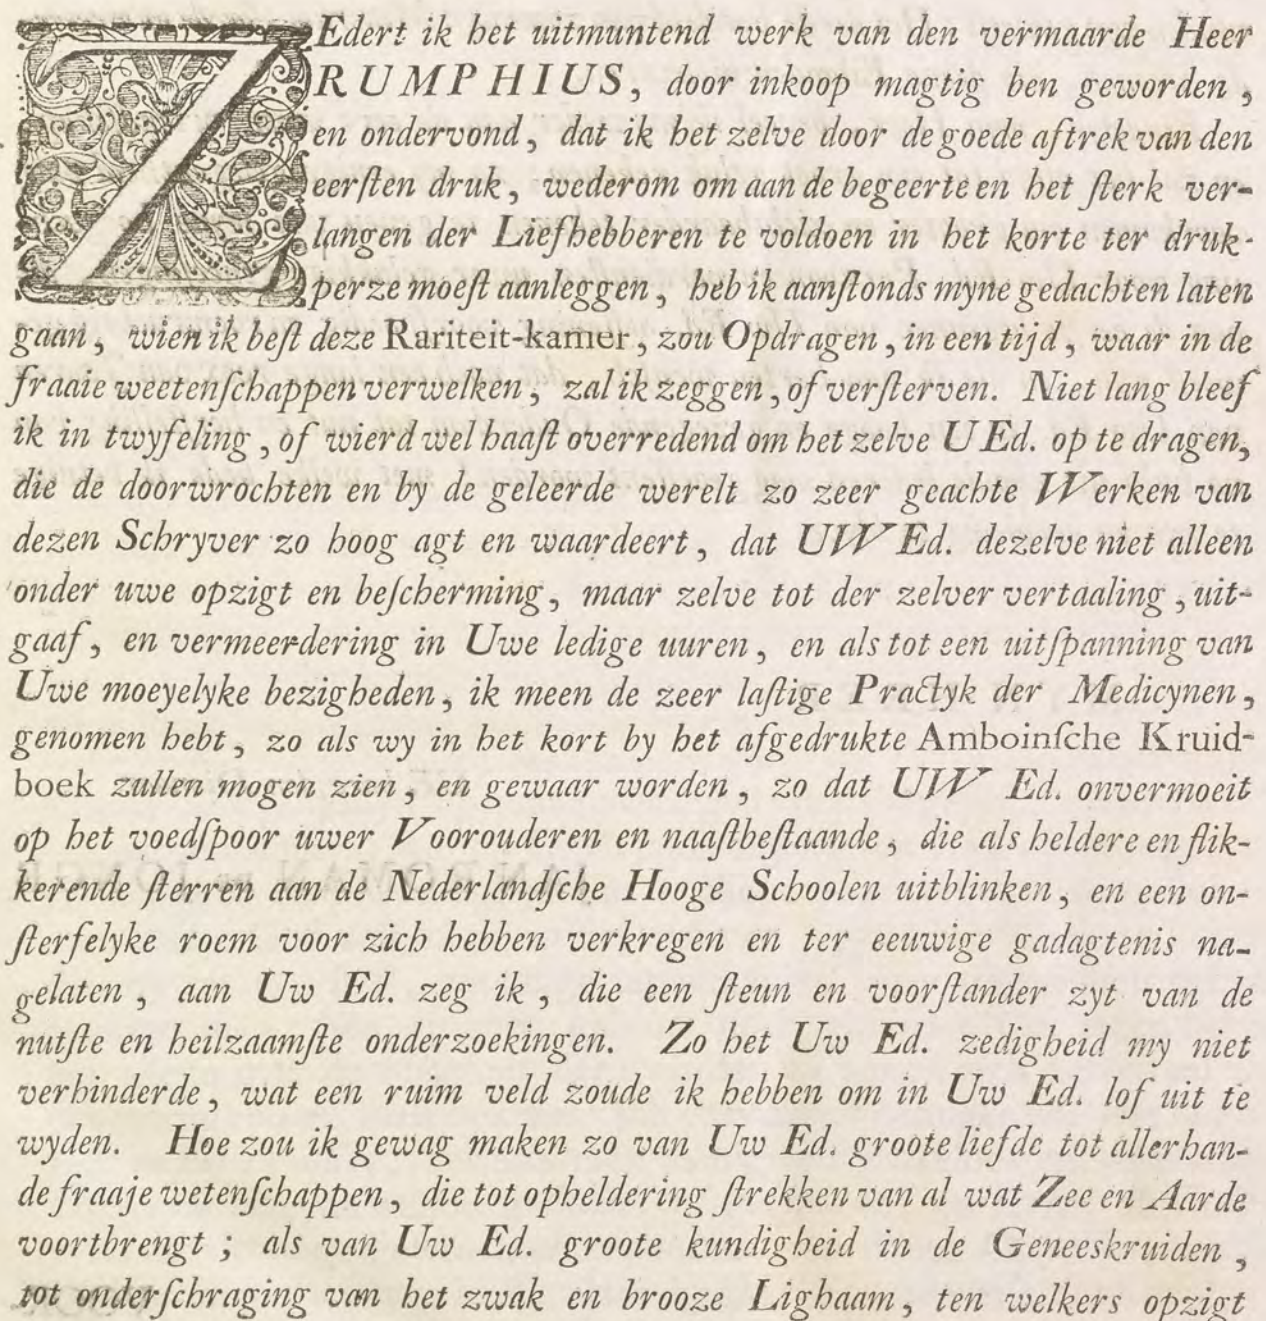 ZEdert ik het uitmuntend werk van den vermaarde Heer
RUMPHIUS, door inkoop magtig ben geworden,
en ondervond, dat ik het zelve door de goede aftrek van den
eerſten druk, wederom om aan de begeerte en het ſterk ver-
langen der Liefhebberen te voldoen in het korte ter druk-
perze moeſt aanleggen, heb ik aanſtonds myne gedachten laten
gaan, wien ik beſt deze Rariteit-kamer, zou Opdragen, in een tijd, waar in de
fraaie weetenſchappen verwelken, zal ik zeggen, of verſterven. Niet lang bleef
ik in twyfeling, of wierd wel haaſt overredend om het zelve UEd. op te dragen,
die de doorwrochten en by de geleerde werelt zo zeer geachte Werken van
dezen Schryver zo hoog agt en waardeert, dat UW Ed. dezelve niet alleen
onder uwe opzigt en beſcherming, maar zelve tot der zelver vertaaling, uit-
gaaf, en vermeerdering in Uwe ledige uuren, en als tot een uitſpanning van
Uwe moeyelyke bezigheden, ik meen de zeer laſtige Practyk der Medicynen,
genomen hebt, zo als wy in het kort by het afgedrukte Amboinſche Kruid-
boek zullen mogen zien, en gewaar worden, zo dat UW Ed. onvermoeit
op het voedſpoor uwer Voorouderen en naaſtbeſtaande, die als heldere en flik-
kerende ſterren aan de Nederlandſche Hooge Schoolen uitblinken, en een on-
ſterfelyke roem voor zich hebben verkregen en ter eeuwige gadagtenis na-
gelaten, aan Uw Ed. zeg ik, die een ſteun en voorſtander zyt van de
nutſte en heilzaamſte onderzoekingen. Zo het Uw Ed. zedigheid my niet
verhinderde, wat een ruim veld zoude ik hebben om in Uw Ed. lof uit te
wyden. Hoe zou ik gewag maken zo van Uw Ed. groote liefde tot allerhan-
de fraaje wetenſchappen, die tot opheldering ſtrekken van al wat Zee en Aarde
voortbrengt; als van Uw Ed. groote kundigheid in de Geneeskruiden,
tot onderſchraging van het zwak en brooze Lighaam, ten welkers opzigt